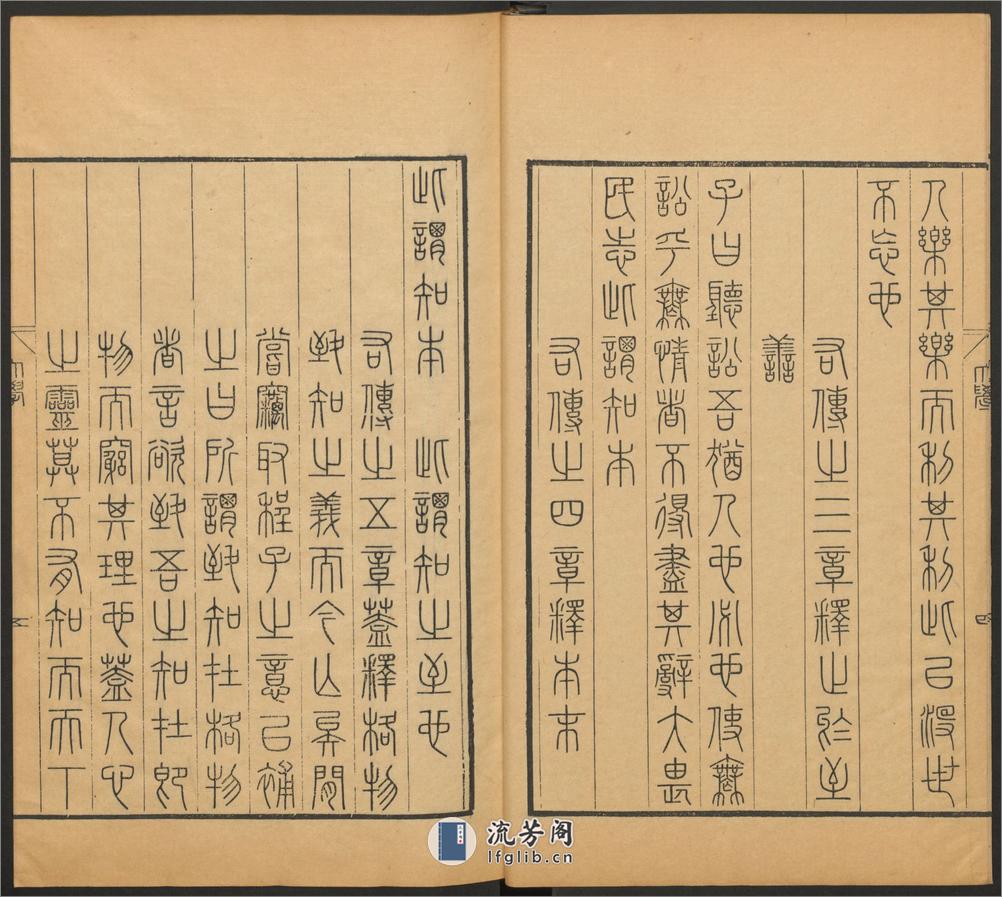 人樂其樂而利其利此以沒世
不忘也
右傳之三章釋止於至
善
子曰聽訟吾猶人也必也使無
訟乎無情者不得盡其辭大畏
民志此謂知本
右傳之四章釋本末
此謂知本　此謂知之至也
右傳之五章蓋釋格物
致知之義而今亡矣閒
嘗竊取程子之意以補
之曰所謂致知在格物
者言欲致吾之知在即
物而窮其理也蓋人心
之靈莫不有知而天下
大學
流芳阁
lfglib.cn